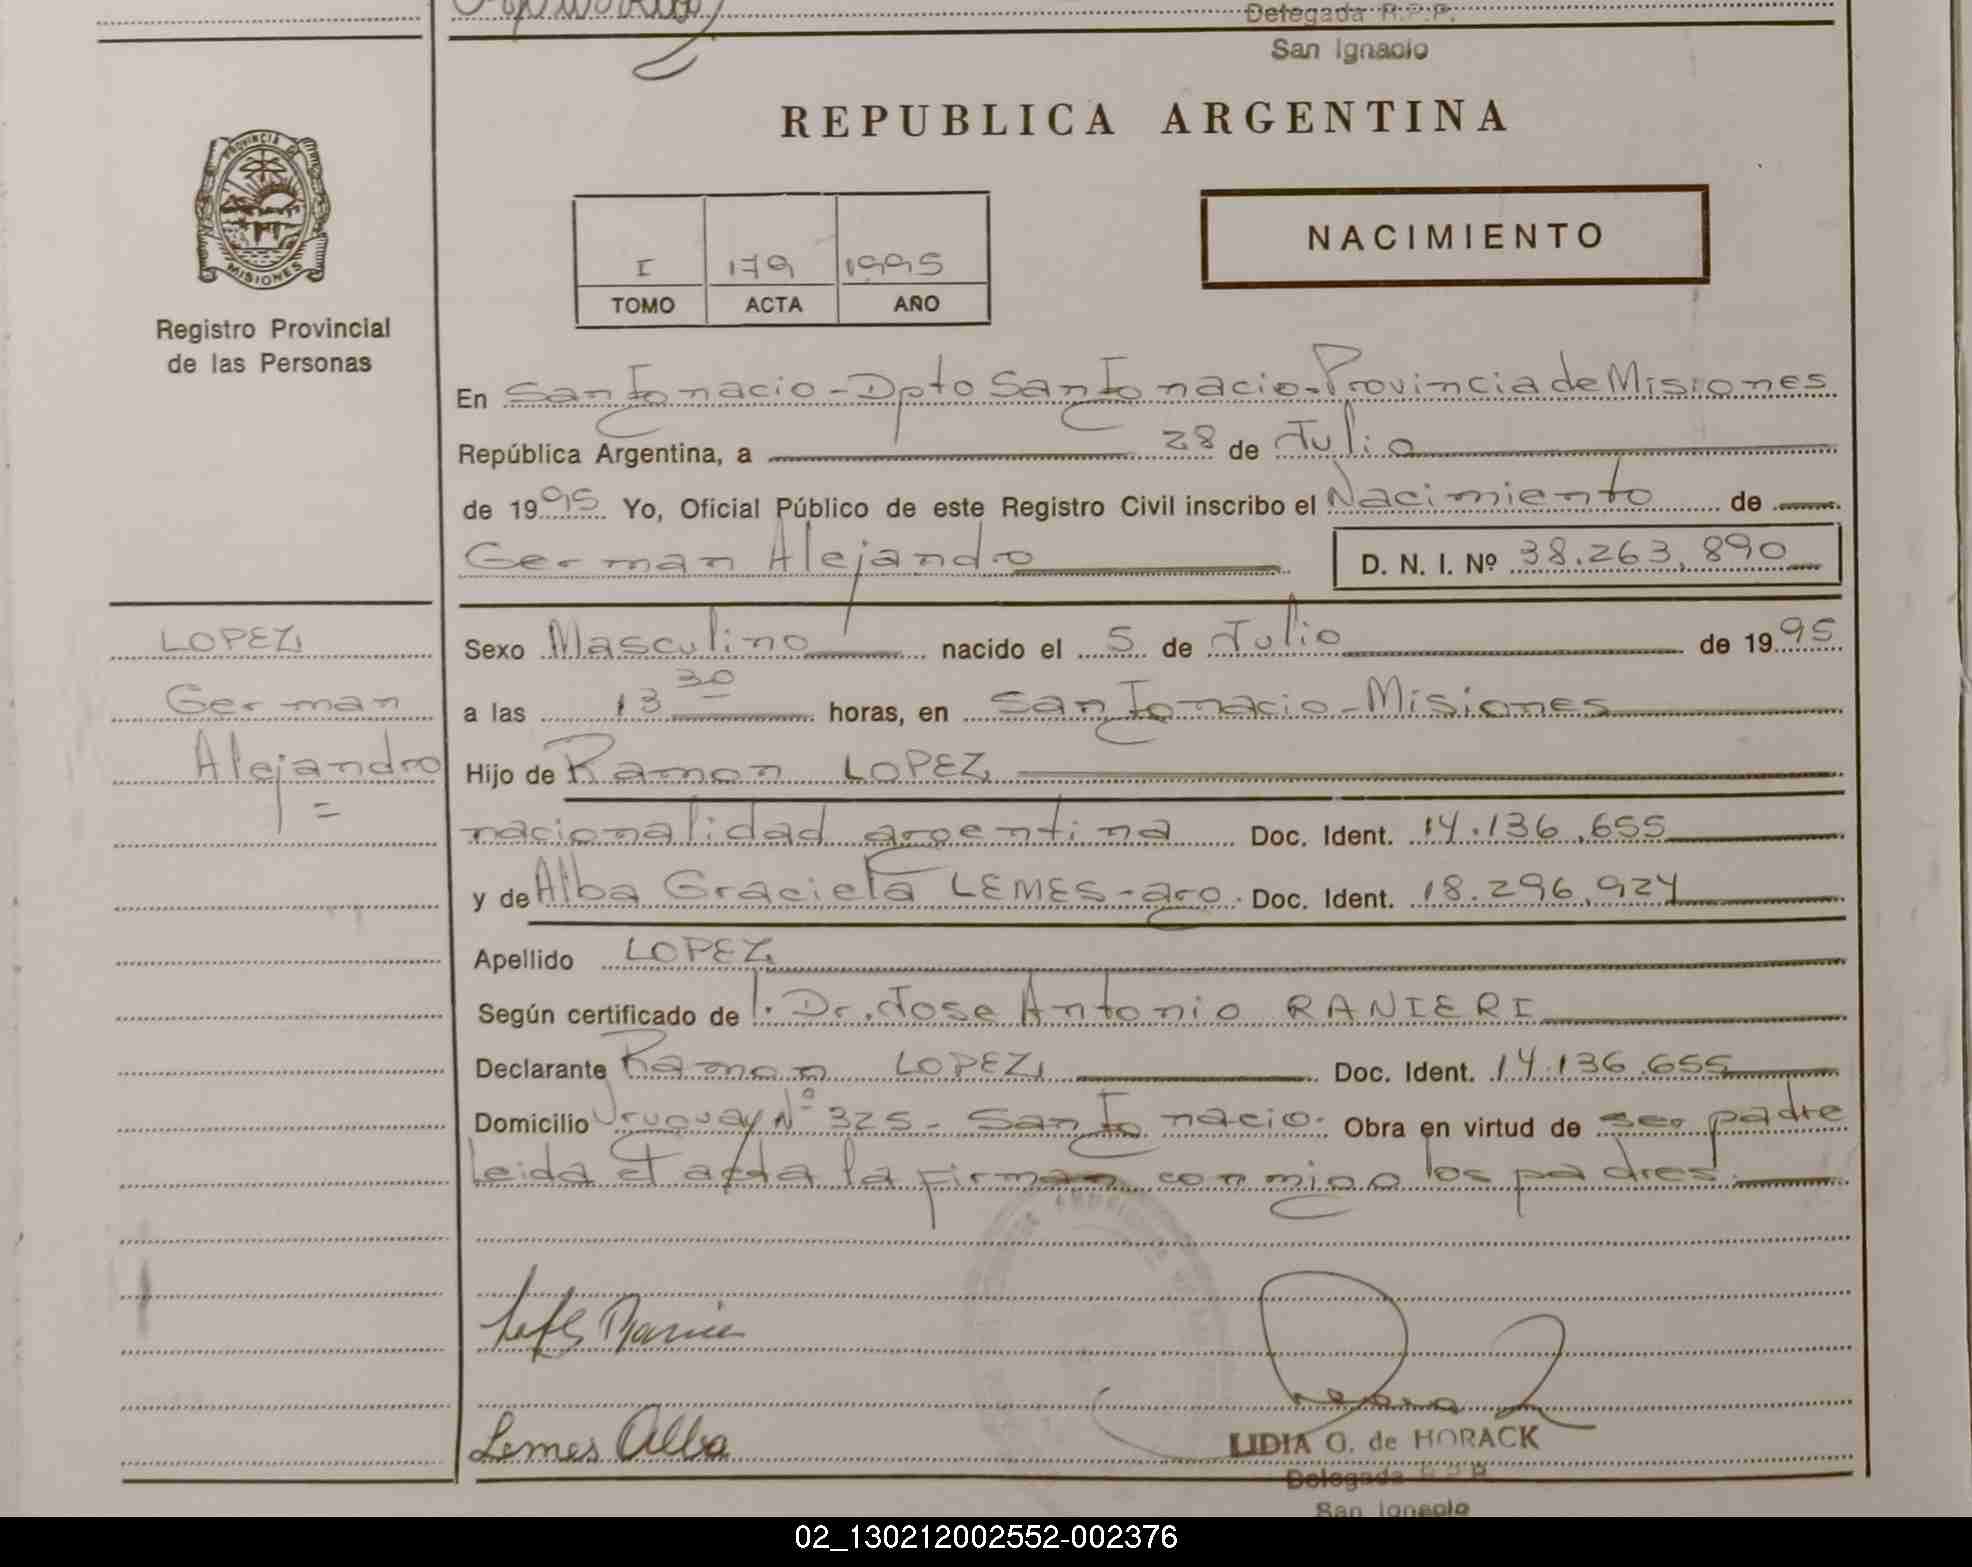 Delegada R.P.P.
San Ignacio
REPUBLICA ARGENTINA
PROVINCIA DE
MISIONES
Registro Provincial
de las Personas
I 179 1995
TOMO ACTA AÑO
NACIMIENTO
En San Ignacio - Dpto San Ignacio - Provincia de Misiones
República Argentina, a 28 de Julio
de 1995 Yo, Oficial Público de este Registro Civil inscribo el Nacimiento de
German Alejandro D. N. I. Nº 38.263.890
LOPEZ
German
Alejandro
=
Sexo Masculino nacido el 5 de Julio de 1995
a las 13 30 horas, en San Ignacio - Misiones
Hijo de Ramon LOPEZ
nacionalidad argentina Doc. Ident. 14.136.655
y de Alba Graciela LEMES - arg. Doc. Ident. 18.296.924
Apellido LOPEZ
Según certificado de l. Dr. Jose Antonio RANIERI
Declarante Ramon LOPEZ Doc. Ident. 14.136.655
Domicilio Uruguay Nº 325 - San Ignacio. Obra en virtud de ser padre
Leida el acta la firman conmigo los padres.
Lemes Alba
LIDIA G. de HORACK
Delegada R.P.P.
San Ignacio
02_130212002552-002376